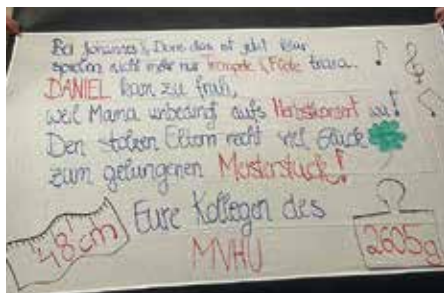 Bei Johannes & Doris das ist jetzt klar
spielen nicht mehr nur Trompete & Flöte trara.
DANIEL kam zu früh,
weil Mama unbedingt aufs Herbstkonzert wü!
Den stolzen Eltern recht viel Glück
zum gelungenen Musterstück!
Eure Kollegen des
MVHU
48cm
2605g